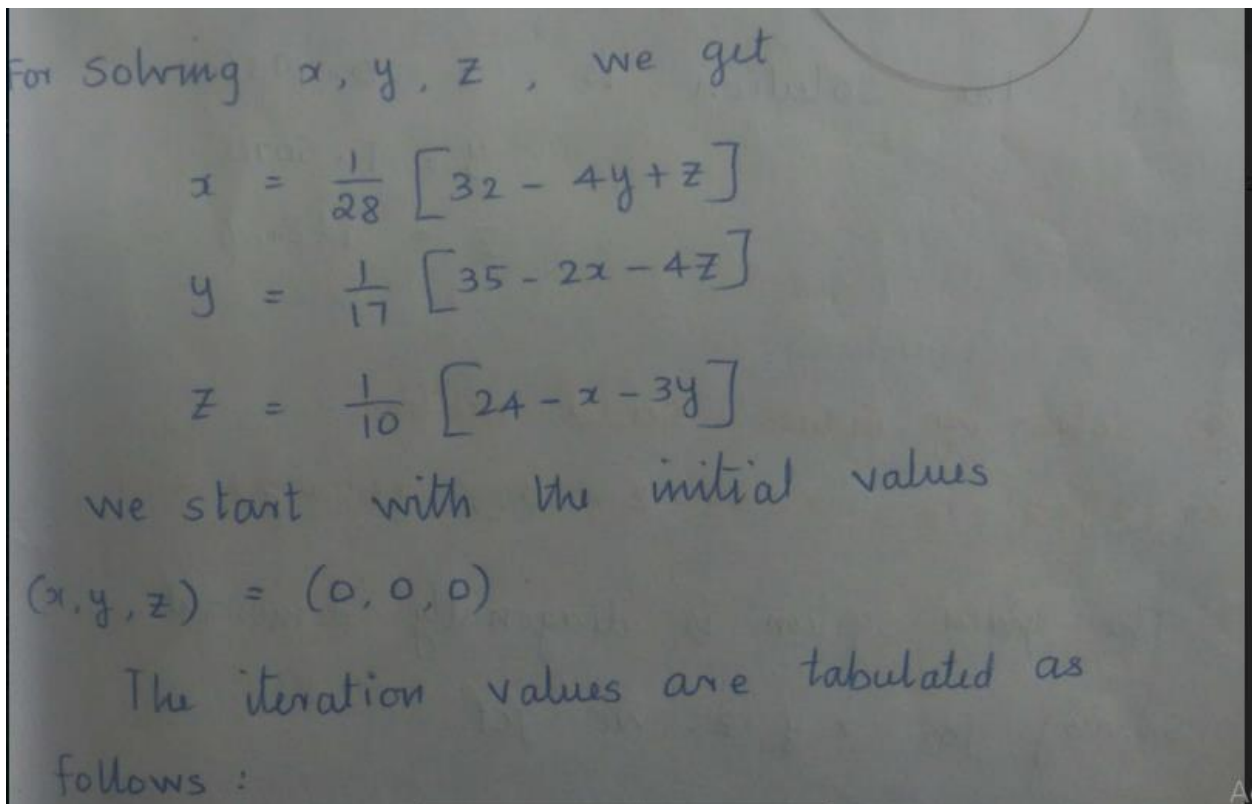 For solving x, y, z, we get
x = 1/28 [32 - 4y + z]
y = 1/17 [35 - 2x - 4z]
z = 1/10 [24 - x - 3y]
we start with the initial values
(x, y, z) = (0, 0, 0)
The iteration values are tabulated as
follows :